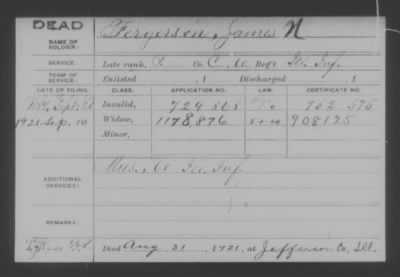 DEAD
NAME OF SOLDIER: Fergerson, James N
SERVICE: Late rank, P. Co C, 60 Reg't Ill. Inf.
TERM OF SERVICE: Enlisted , 1 Discharged , 1
DATE OF FILING. CLASS. APPLICATION NO. LAW. CERTIFICATE NO.
Invalid, 729 868 752 575
1921 Sep. 10 Widow, 1178,876 908125
Minor,
ADDITIONAL SERVICES: Mus., 60 Ill. Inf.
REMARKS:
Died Aug 31, 1921, at Jefferson Co, Ill.